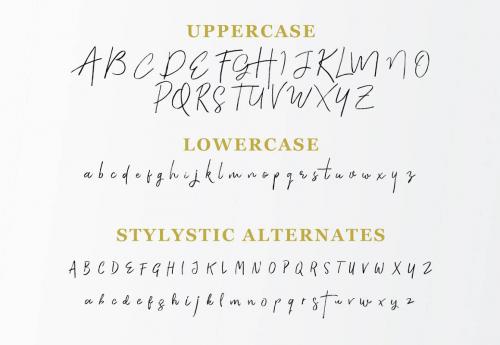 UPPERCASE
A B C D E F G H I J K L M N O
P Q R S T U V W X Y Z
LOWERCASE
a b c d e f g h i j k l m n o p q r s t u v w x y z
STYLYSTIC ALTERNATES
A B C D E F G H I J K L M N O P Q R S T U V W X Y Z
a b c d e f g h i j k l m n o p q r s t u v w x y z